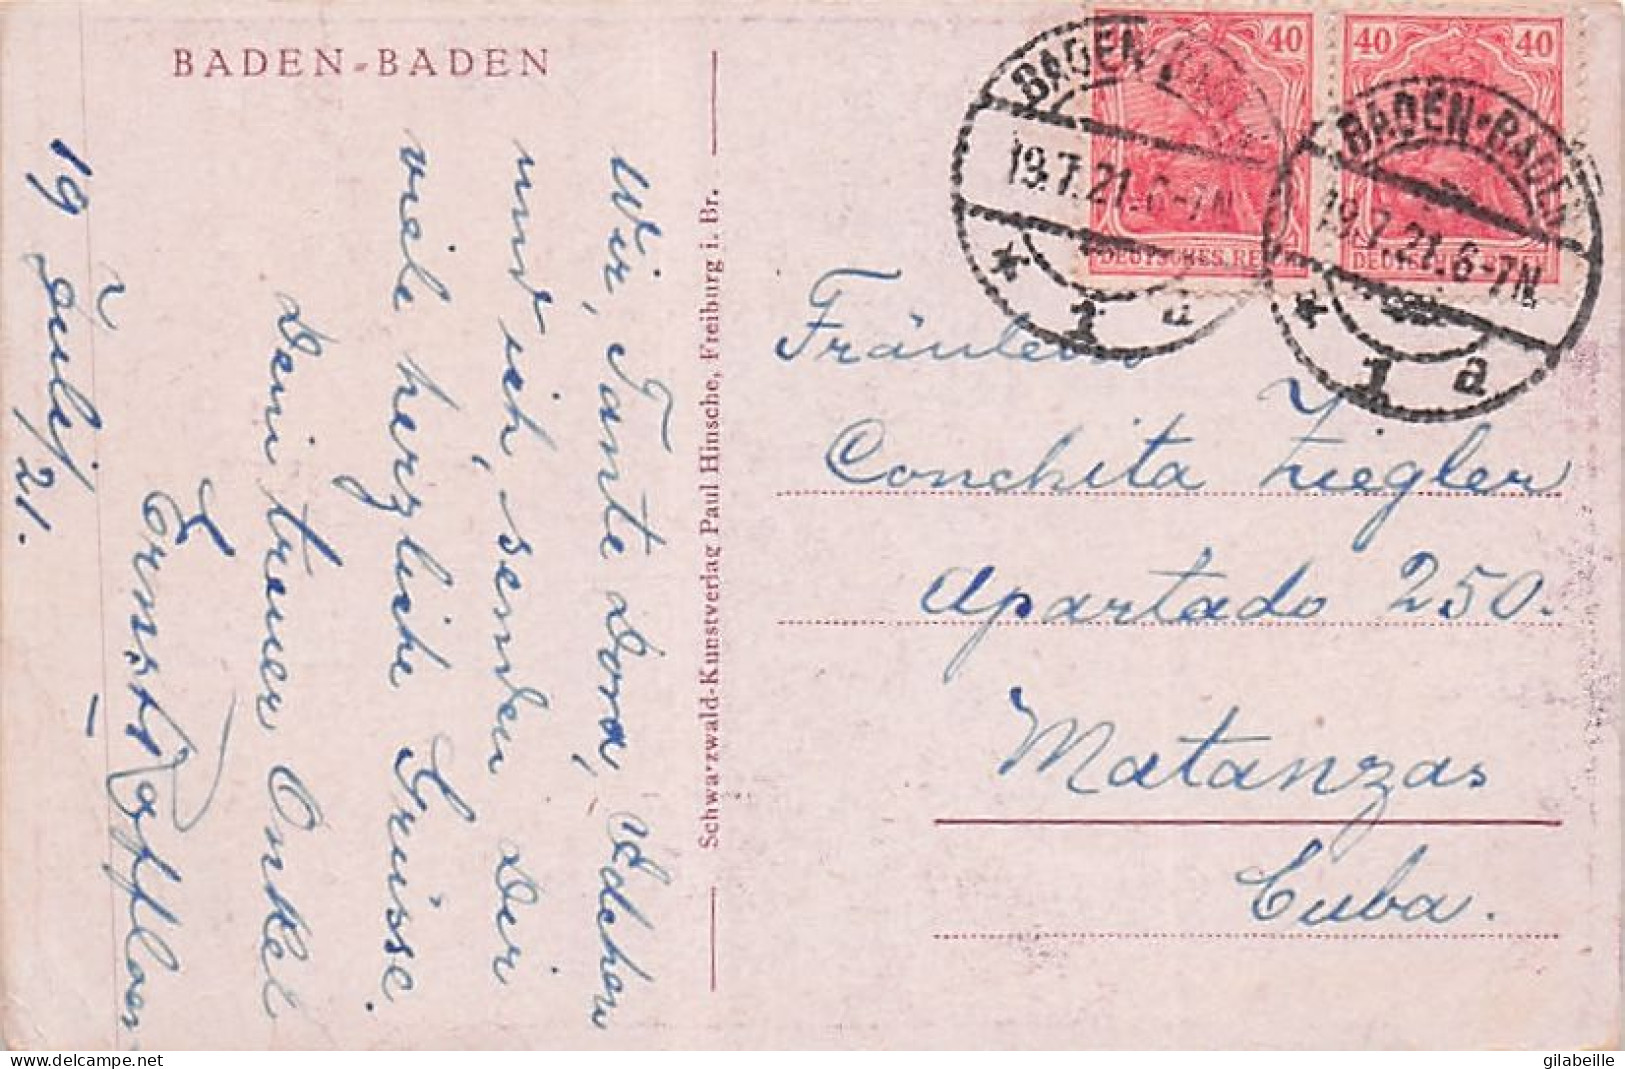 BADEN-BADEN
19 Julij
21.
Wir, Tante Dora, Edchen
und ich, senden Dir
viele herzliche Grüsse.
Dein treuer Onkel
Ernst
Schwarzwald-Kunstverlag Paul Hinsche, Freiburg i. Br.
40
40 40
DEUTSCHES REICH
DEUTSCHES REICH
BADEN-BADEN
19.7.21.6-7N
* 1 a
BADEN-BADEN
19.7.21.6-7N
* 1 a
Fräulein
Conchita Ziegler
Apartado 250.
Matanzas
Cuba.
gilabeille